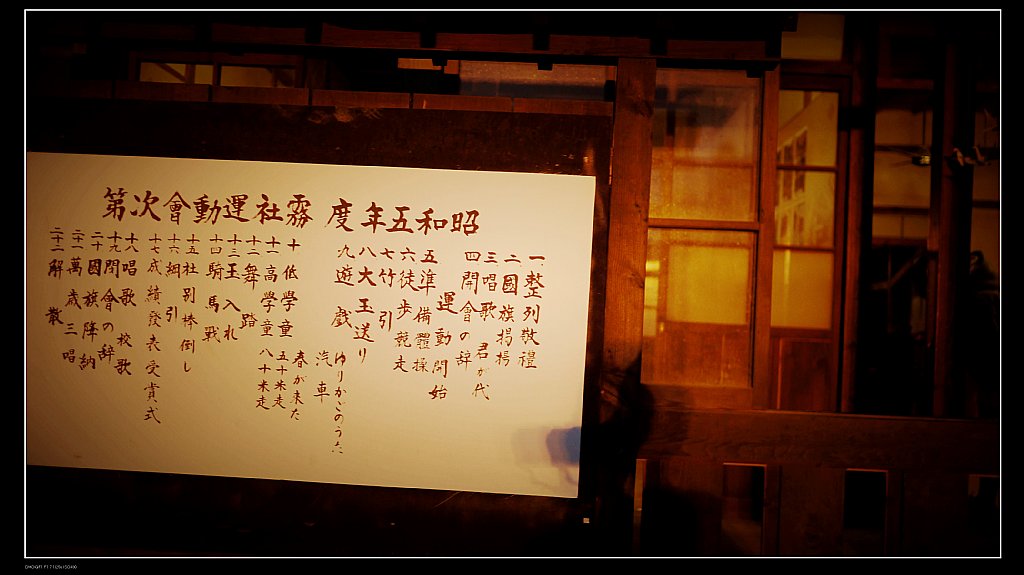 昭和五年度 霧社運動會次第
一 整列敬禮
二 國旗揭揚
三 唱歌 君が代
四 開會の辞
運動開始
五 準備體操
六 徒歩競走
七 竹引
八 大玉送り
九 遊戯
ゆりかごのうた
汽車
春が来た
十 低學童 五十米走
十一 高學童 八十米走
十二 舞踊
十三 玉入れ
十四 騎馬戰
十五 社別棒倒し
十六 綱引
十七 成績發表受賞式
十八 唱歌 校歌
十九 閉會の辞
二十 國旗降納
二十一 萬歳三唱
二十二 解散